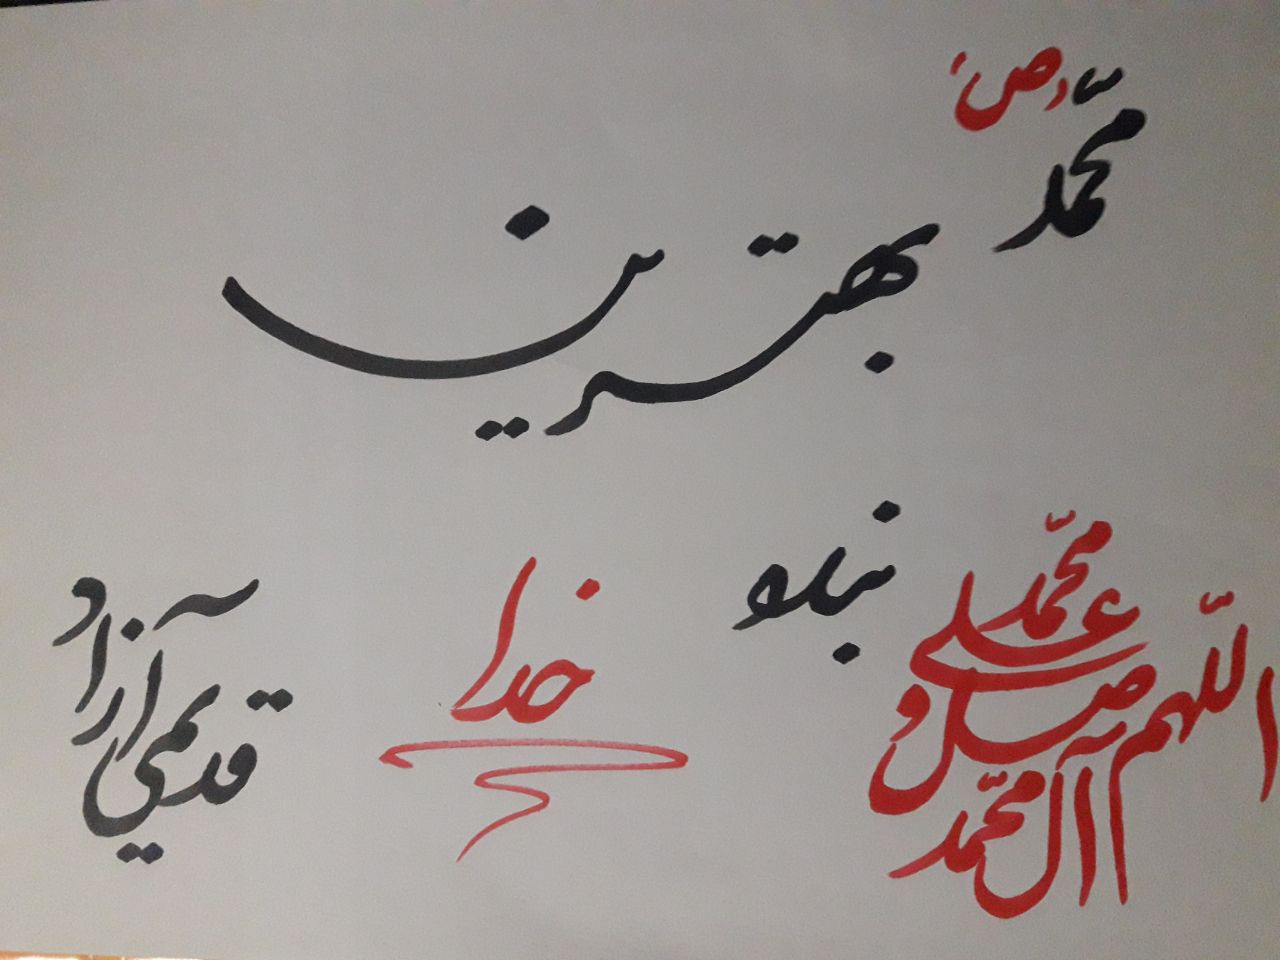 محمّد (ص)
بهترین
بنده
خدا
اللّهم صل علی محمّد و آل محمّد
قدیمی آزاد